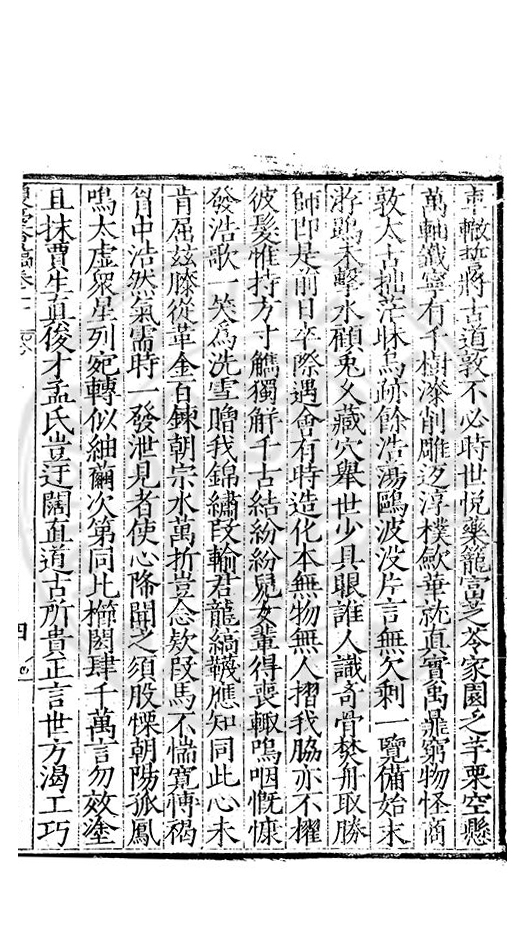 車轍誓將古道敦不必時世悅藥籠富芝苓家園乏芋栗空懸
萬軸籤寧有千樹漆削雕迄淳樸歛華就真實禹鼎窮物怪商
敦太古拙茫昧烏跡餘浩蕩鷗波沒片言無欠剩一覽備始末
游鵾未擊水顧兔又藏穴舉世少具眼誰人識奇骨焚舟取勝
師即是前日卒際遇會有時造化本無物無人摺我脇亦不擢
彼髮惟持方寸觿獨解千古結紛紛兒女輩得喪輙嗚咽慨慷
發浩歌一笑為洗雪贈我錦繡段輸君龍縞韈應知同此心未
肯屈茲膝從革金百鍊朝宗水萬折豈念欵段馬不惴寬博褐
胷中浩然氣需時一發泄見者使心降聞之須股慄朝陽孤鳳
鳴太虛衆星列宛轉似紬繭次第同比櫛閎肆千萬言勿效塗
且抹賈生真後才孟氏豈迂闊直道古所貴正言世方渴工巧
四